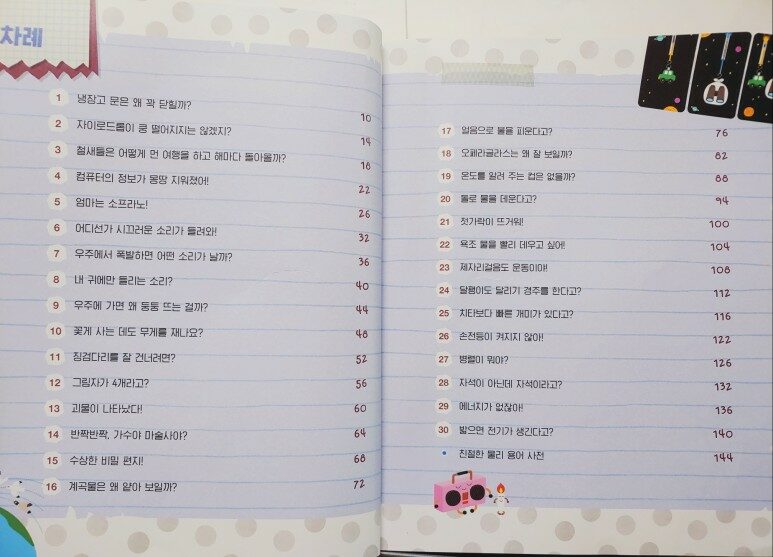 차례
1 냉장고 문은 왜 꽉 닫힐까? 10
2 자이로드롭이 쿵 떨어지지는 않겠지? 14
3 철새들은 어떻게 먼 여행을 하고 해마다 돌아올까? 18
4 컴퓨터의 정보가 몽땅 지워졌어! 22
5 엄마는 소프라노! 26
6 어디선가 시끄러운 소리가 들려와! 32
7 우주에서 폭발하면 어떤 소리가 날까? 36
8 내 귀에만 들리는 소리? 40
9 우주에 가면 왜 둥둥 뜨는 걸까? 44
10 꽃게 사는 데도 무게를 재나요? 48
11 징검다리를 잘 건너려면? 52
12 그림자가 4개라고? 56
13 괴물이 나타났다! 60
14 반짝반짝, 가수야 마술사야? 64
15 수상한 비밀 편지! 68
16 계곡물은 왜 얕아 보일까? 72
17 얼음으로 불을 피운다고? 76
18 오페라글라스는 왜 잘 보일까? 82
19 온도를 알려 주는 컵은 없을까? 88
20 돌로 물을 데운다고? 94
21 젓가락이 뜨거워! 100
22 욕조 물을 빨리 데우고 싶어! 104
23 제자리걸음도 운동이야! 108
24 달팽이도 달리기 경주를 한다고? 112
25 치타보다 빠른 개미가 있다고? 116
26 손전등이 켜지지 않아! 122
27 병렬이 뭐야? 126
28 자석이 아닌데 자석이라고? 132
29 에너지가 없잖아! 136
30 밟으면 전기가 생긴다고? 140
• 친절한 물리 용어 사전 144